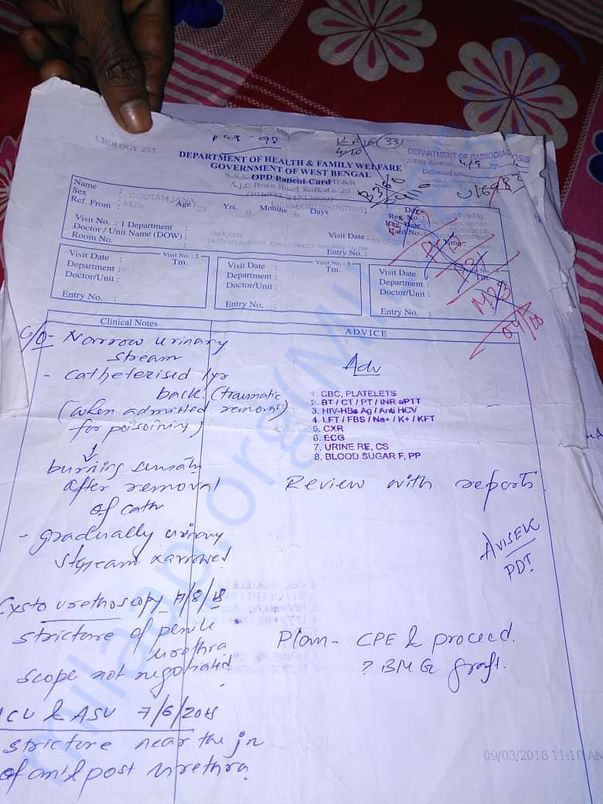 UROLOGY 255
DEPARTMENT OF HEALTH & FAMILY WELFARE
GOVERNMENT OF WEST BENGAL
OPD Patient Card
A.J.C Bose Road Kolkata-20
DEPARTMENT OF RADIODIAGNOSIS
Name :
Sex : Age : Yrs. Months Days
GOUTAM JANA
Ref. From :
Visit No. : 1 Department :
Doctor / Unit Name (DOW) :
Room No.
Visit Date :
Entry No. :
Visit Date : Visit No. : 2
Department : Tm.
Doctor/Unit :
Entry No. :
Visit Date : Visit No. : 3
Department : Tm.
Doctor/Unit :
Entry No. :
Visit Date :
Department : Tm.
Doctor/Unit :
Entry No. :
Clinical Notes
ADVICE
C/O- Narrow urinary
stream
- Catheterised 1yr
back. (traumatic
(when admitted removal)
for poisoning)
↓
burning sensatn
after removal
of cath
- gradually urinary
stream narrowed
Cysto urethoscopy 7/8/18
stricture of penile
urethra
scope not negotiated
& ASU 7/6/2018
stricture near the jn
of ant & post urethra
Adv
1. CBC, PLATELETS
2. BT / CT / PT / INR aPTT
3. HIV-HBs Ag / Anti HCV
4. LFT / FBS / Na+ / K+ / KFT
5. CXR
6. ECG
7. URINE RE, CS
8. BLOOD SUGAR F, PP
Review with reports
AVISEK
PDT
Plan- CPE & proceed.
? BMG graft.
09/03/2018 11:10 AM
milaap.org